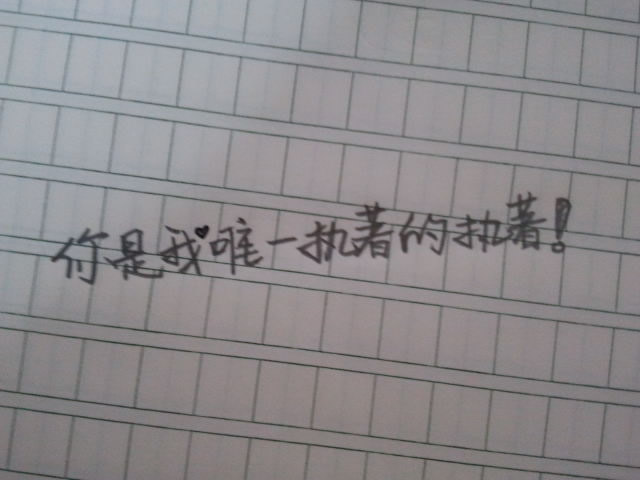 你是我唯一执著的执著!